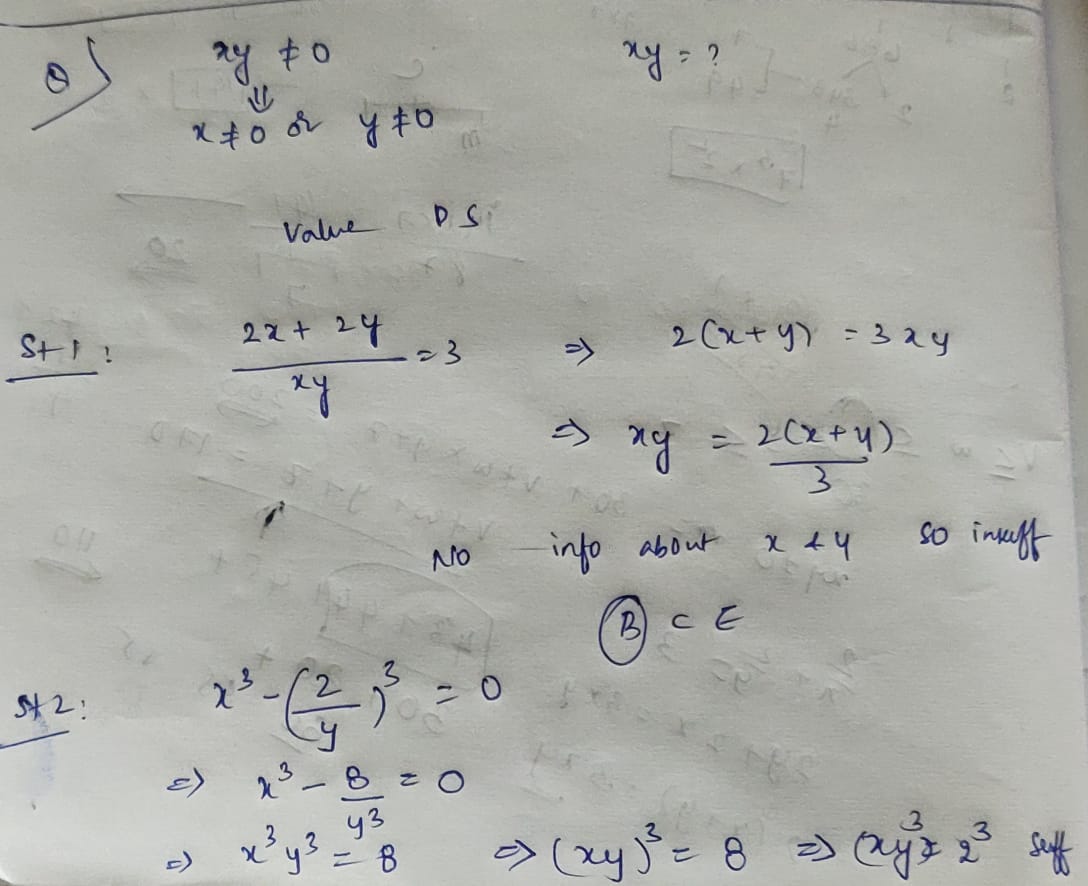 Q) xy ≠ 0 xy = ?
⇓
x ≠ 0 or y ≠ 0
Value DS
St 1: (2x + 2y)/xy = 3 ⇒ 2(x + y) = 3xy
⇒ xy = 2(x + y)/3
No info about x & y so insuff
Ⓑ C E
St 2: x³ - (2/y)³ = 0
⇒ x³ - 8/y³ = 0
⇒ x³y³ = 8 ⇒ (xy)³ = 8 ⇒ (xy)³ = 2³ suff